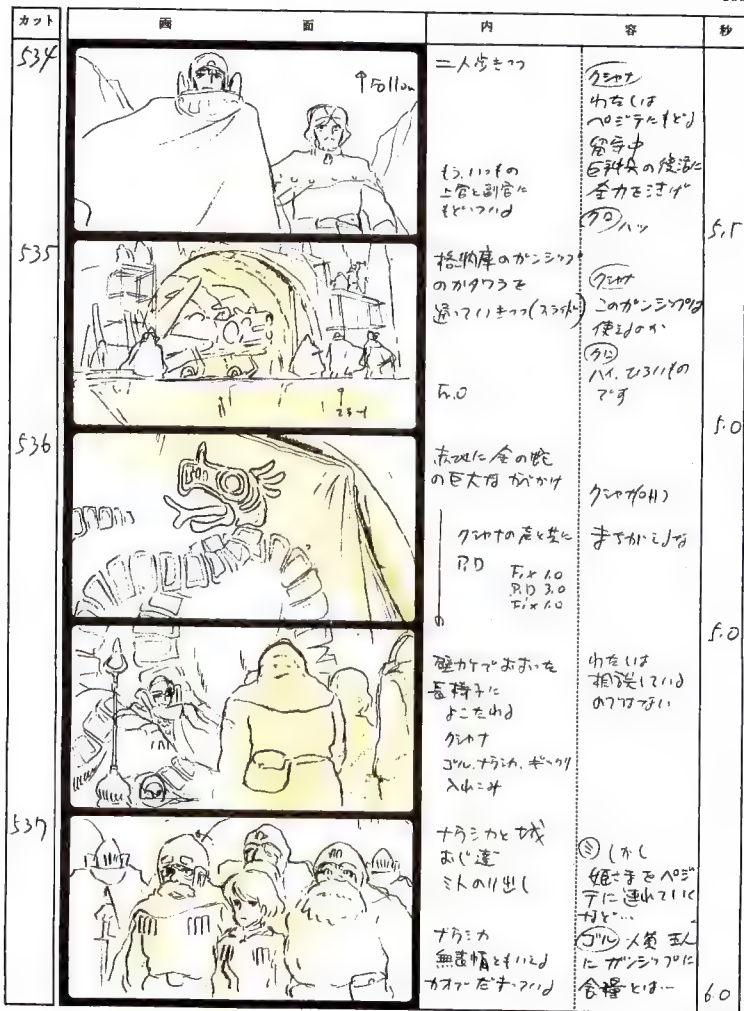 カット
画 面
内 容
秒
534
↑Follow
二人歩きつつ
もう、いつもの
上官と副官に
もどっている
クシャナ
わたしは
ペジテにもどる
留守中
巨神兵の復活に
全力を注げ
クロ ハッ
535
格納庫のガンシップ
のカタワラを
通っていきつつ(スライド)
F.O
クシャナ
このガンシップは
使えるのか
クロ
ハイ、ひろいもの
です
5.0
536
赤地に金の蛇
の巨大な かべかけ
クシャナの声と共に
P.D
Fix 1.0
P.D 3.0
Fix 1.0
まちがえるな
5.0
壁カケでおおった
長椅子に
よこたわる
クシャナ
ゴル、ナウシカ、ギックリ
入れこみ
わたしは
相談している
のではない
537
ナウシカと城
おじ達
ミトのり出し
ナウシカ
無表情ともいえる
カオでだまっている
ミ しかし
姫さまをペジ
テに連れていく
など…
ゴル 人質五人
にガンシップに
食糧とは…
6.0